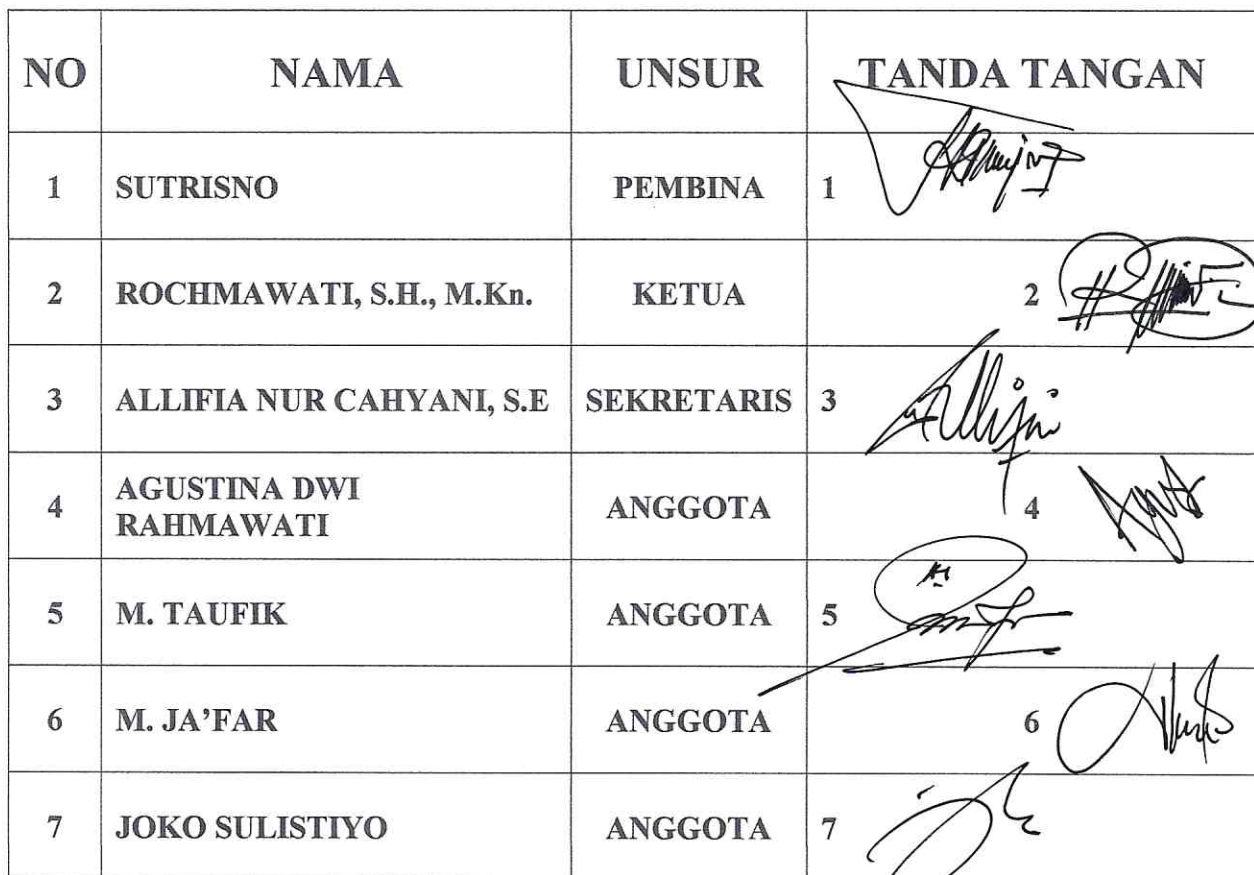 NO NAMA UNSUR TANDA TANGAN
1 SUTRISNO PEMBINA 1
2 ROCHMAWATI, S.H., M.Kn. KETUA 2
3 ALLIFIA NUR CAHYANI, S.E SEKRETARIS 3
4 AGUSTINA DWI
RAHMAWATI ANGGOTA 4
5 M. TAUFIK ANGGOTA 5
6 M. JA’FAR ANGGOTA 6
7 JOKO SULISTIYO ANGGOTA 7